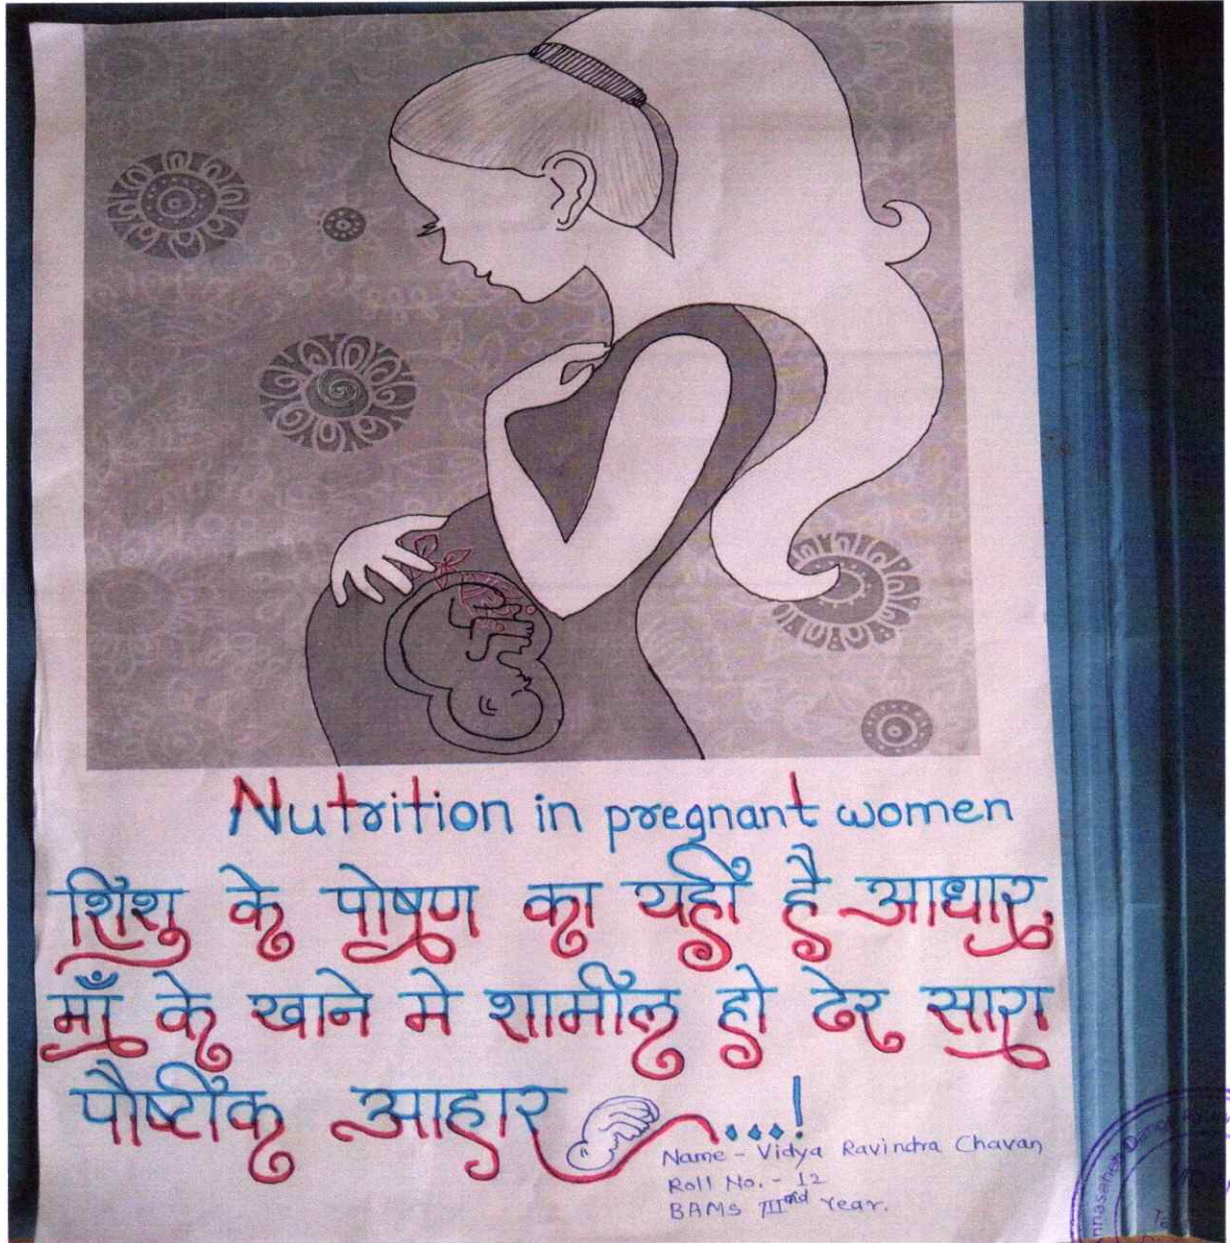 Nutrition in pregnant women
शिशु के पोषण का यहीं है आधार,
माँ के खाने मे शामील हो ढेर सारा
पौष्टीक आहार ...!
Name - Vidya Ravindra Chavan
Roll No. - 12
BAMS IIIrd Year.